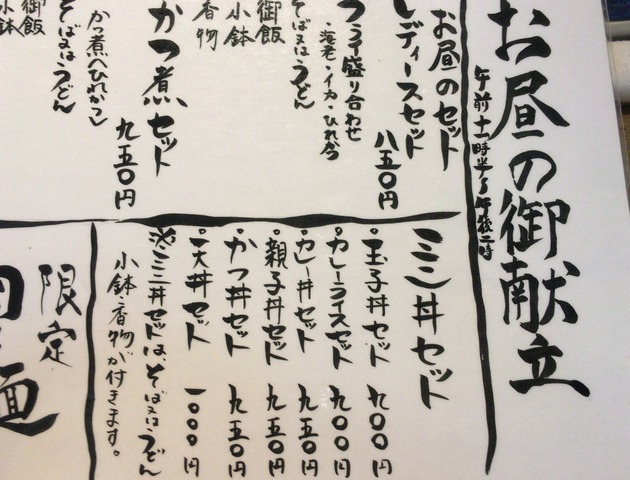 お昼の御献立
午前十一時半より午後二時
お昼のセット
レディースセット
八五〇円
フライ盛り合わせ
・海老・イカ・ひれかつ
そば又はうどん
御飯
小鉢
香物
かつ煮セット
九五〇円
かつ煮(ひれかつ)
そば又はうどん
御飯
小鉢
ミニ丼セット
・玉子丼セット 九〇〇円
・カレーライスセット 九〇〇円
・カレー丼セット 九五〇円
・親子丼セット 九五〇円
・かつ丼セット 九五〇円
・天丼セット 一〇〇〇円
※ミニ丼セットは、そば又はうどん
小鉢・香物が付きます。
限定